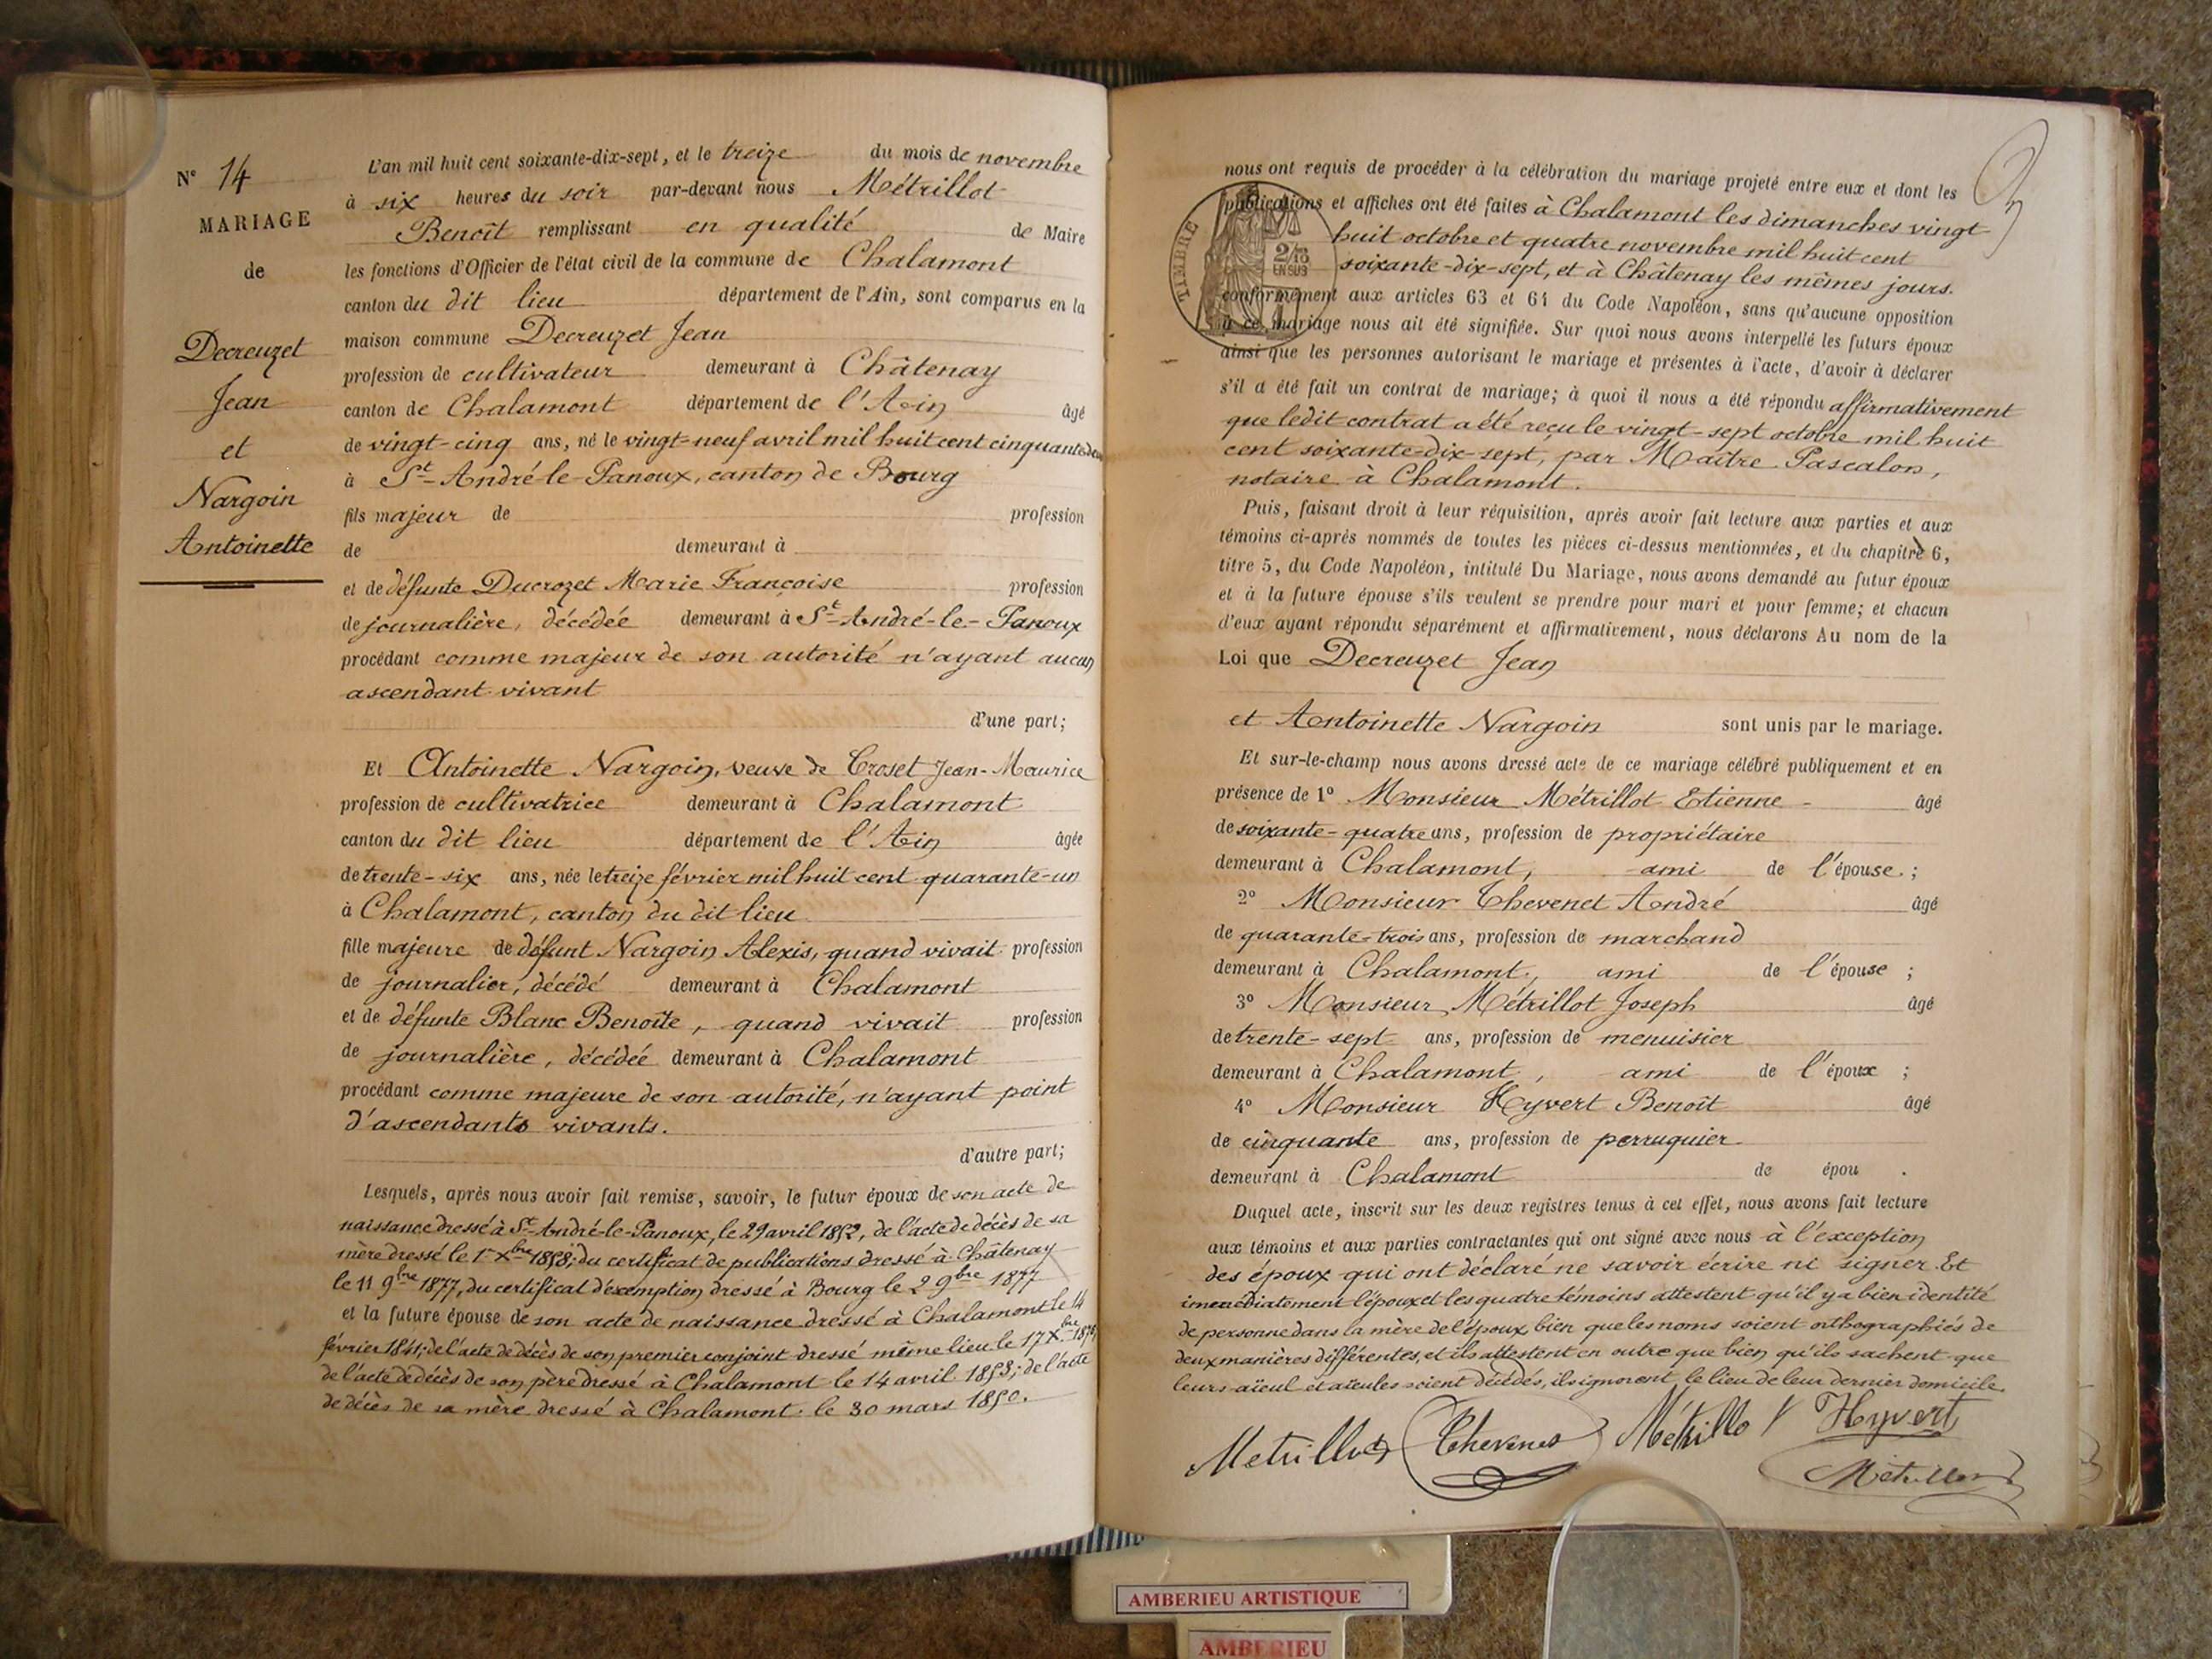 N° 14
MARIAGE
de
Decreuzet
Jean
et
Nargoin
Antoinette
L'an mil huit cent soixante-dix-sept, et le treize du mois de novembre
à six heures du soir par-devant nous Métrillot
Benoît remplissant en qualité de Maire
les fonctions d'Officier de l'état civil de la commune de Chalamont
canton du dit lieu département de l'Ain, sont comparus en la
maison commune Decreuzet Jean
profession de cultivateur demeurant à Châtenay
canton de Chalamont département de l'Ain âgé
de vingt-cinq ans, né le vingt-neuf avril mil huit cent cinquante-deux
à St-André-le-Panoux, canton de Bourg
fils majeur de profession
de demeurant à
et de défunte Ducrozet Marie Françoise profession
de journalière, décédée demeurant à St-André-le-Panoux
procédant comme majeur de son autorité n'ayant aucun
ascendant vivant
d'une part;
Et Antoinette Nargoin, veuve de Croset Jean-Maurice
profession de cultivatrice demeurant à Chalamont
canton du dit lieu département de l'Ain âgée
de trente-six ans, née le treize février mil huit cent quarante-un
à Chalamont, canton du dit lieu
fille majeure de défunt Nargoin Alexis, quand vivait profession
de journalier, décédé demeurant à Chalamont
et de défunte Blanc Benoîte, quand vivait profession
de journalière, décédée demeurant à Chalamont
procédant comme majeure de son autorité, n'ayant point
d'ascendants vivants.
d'autre part;
Lesquels, après nous avoir fait remise, savoir, le futur époux de son acte de
naissance dressé à St-André-le-Panoux, le 29 avril 1852, de l'acte de décès de sa
mère dressé le 1er Xbre 1858; du certificat de publications dressé à Châtenay
le 11 9bre 1877, du certificat d'exemption dressé à Bourg le 2 9bre 1877
et la future épouse de son acte de naissance dressé à Chalamont le 14
février 1841; de l'acte de décès de son premier conjoint dressé même lieu le 17 Xbre 1876
de l'acte de décès de son père dressé à Chalamont le 14 avril 1853; de l'acte
de décès de sa mère dressé à Chalamont le 30 mars 1850.
nous ont requis de procéder à la célébration du mariage projeté entre eux et dont les
publications et affiches ont été faites à Chalamont les dimanches vingt-
huit octobre et quatre novembre mil huit cent
soixante-dix-sept, et à Châtenay les mêmes jours.
TIMBRE
2/10
EN SUS
conformément aux articles 63 et 64 du Code Napoléon, sans qu'aucune opposition
à ce mariage nous ait été signifiée. Sur quoi nous avons interpellé les futurs époux
ainsi que les personnes autorisant le mariage et présentes à l'acte, d'avoir à déclarer
s'il a été fait un contrat de mariage; à quoi il nous a été répondu affirmativement
que ledit contrat a été reçu le vingt-sept octobre mil huit
cent soixante-dix-sept, par Maître Pascalon,
notaire à Chalamont.
Puis, faisant droit à leur réquisition, après avoir fait lecture aux parties et aux
témoins ci-après nommés de toutes les pièces ci-dessus mentionnées, et du chapitre 6,
titre 5, du Code Napoléon, intitulé Du Mariage, nous avons demandé au futur époux
et à la future épouse s'ils veulent se prendre pour mari et pour femme; et chacun
d'eux ayant répondu séparément et affirmativement, nous déclarons Au nom de la
Loi que Decreuzet Jean
et Antoinette Nargoin sont unis par le mariage.
Et sur-le-champ nous avons dressé acte de ce mariage célébré publiquement et en
présence de 1° Monsieur Métrillot Etienne âgé
de soixante-quatre ans, profession de propriétaire
demeurant à Chalamont, ami de l'épouse;
2° Monsieur Thevenet André âgé
de quarante-trois ans, profession de marchand
demeurant à Chalamont, ami de l'épouse;
3° Monsieur Métrillot Joseph âgé
de trente-sept ans, profession de menuisier
demeurant à Chalamont, ami de l'époux;
4° Monsieur Hyvert Benoît âgé
de cinquante ans, profession de perruquier
demeurant à Chalamont de épou .
Duquel acte, inscrit sur les deux registres tenus à cet effet, nous avons fait lecture
aux témoins et aux parties contractantes qui ont signé avec nous à l'exception
des époux qui ont déclaré ne savoir écrire ni signer. Et
immédiatement l'époux et les quatre témoins attestent qu'il y a bien identité
de personne dans la mère de l'époux, bien que les noms soient orthographiés de
deux manières différentes, et ils attestent en outre que bien qu'ils sachent que
leurs aïeul et aïeules soient décédés, ils ignorent le lieu de leur dernier domicile.
Metrillot Thevenet Métrillot Hyvert
Métrillot
AMBERIEU ARTISTIQUE
AMBERIEU